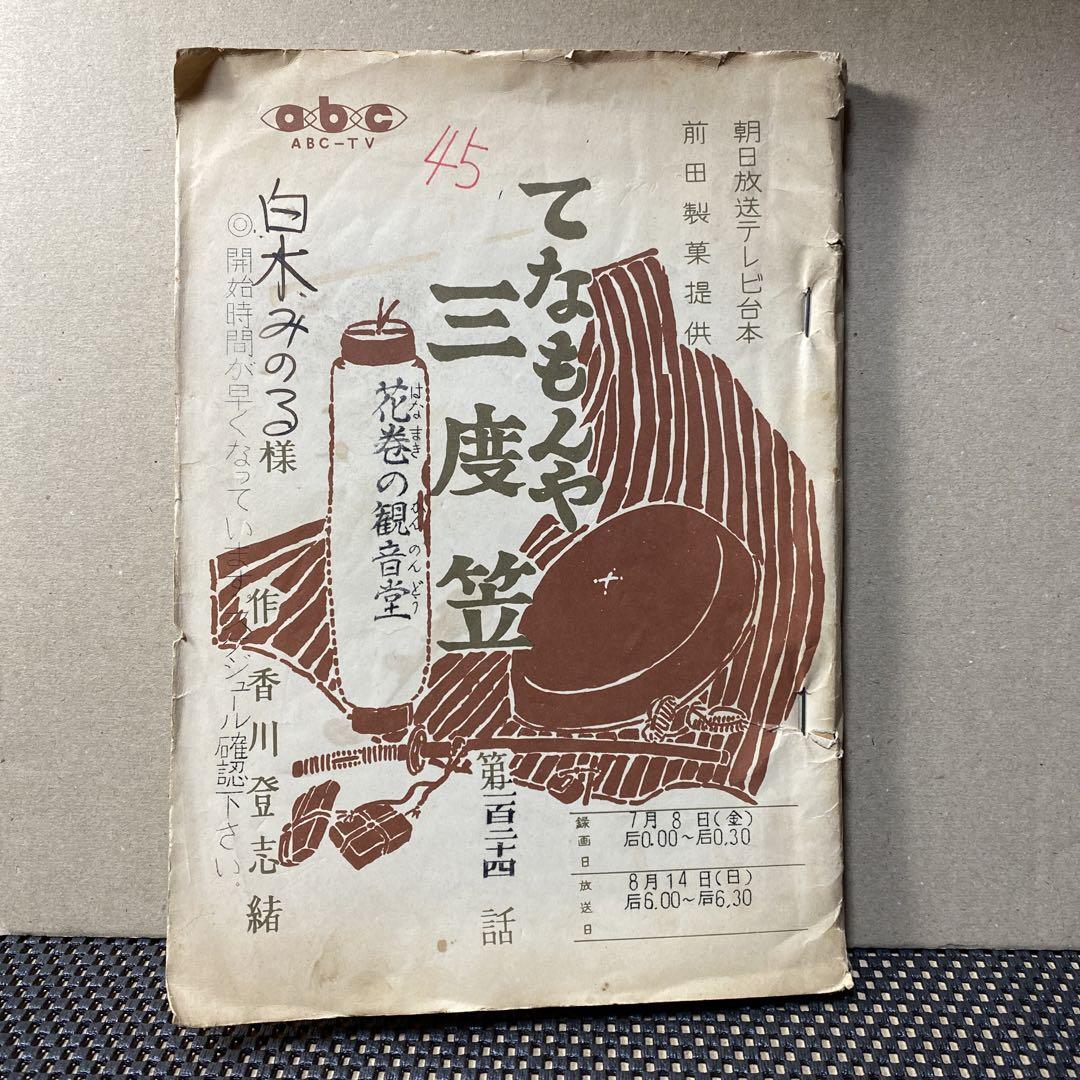 abc
ABC-TV
45
朝日放送テレビ台本
前田製菓提供
てなもんや
三度笠
はなまき かんのんどう
花巻の観音堂
白木みのる様
◎開始時間が早くなっています。スケジュール確認下さい。
作 香川登志緒
第二百二十四話
録画日 7月8日(金)
后0.00~后0.30
放送日 8月14日(日)
后6.00~后6.30